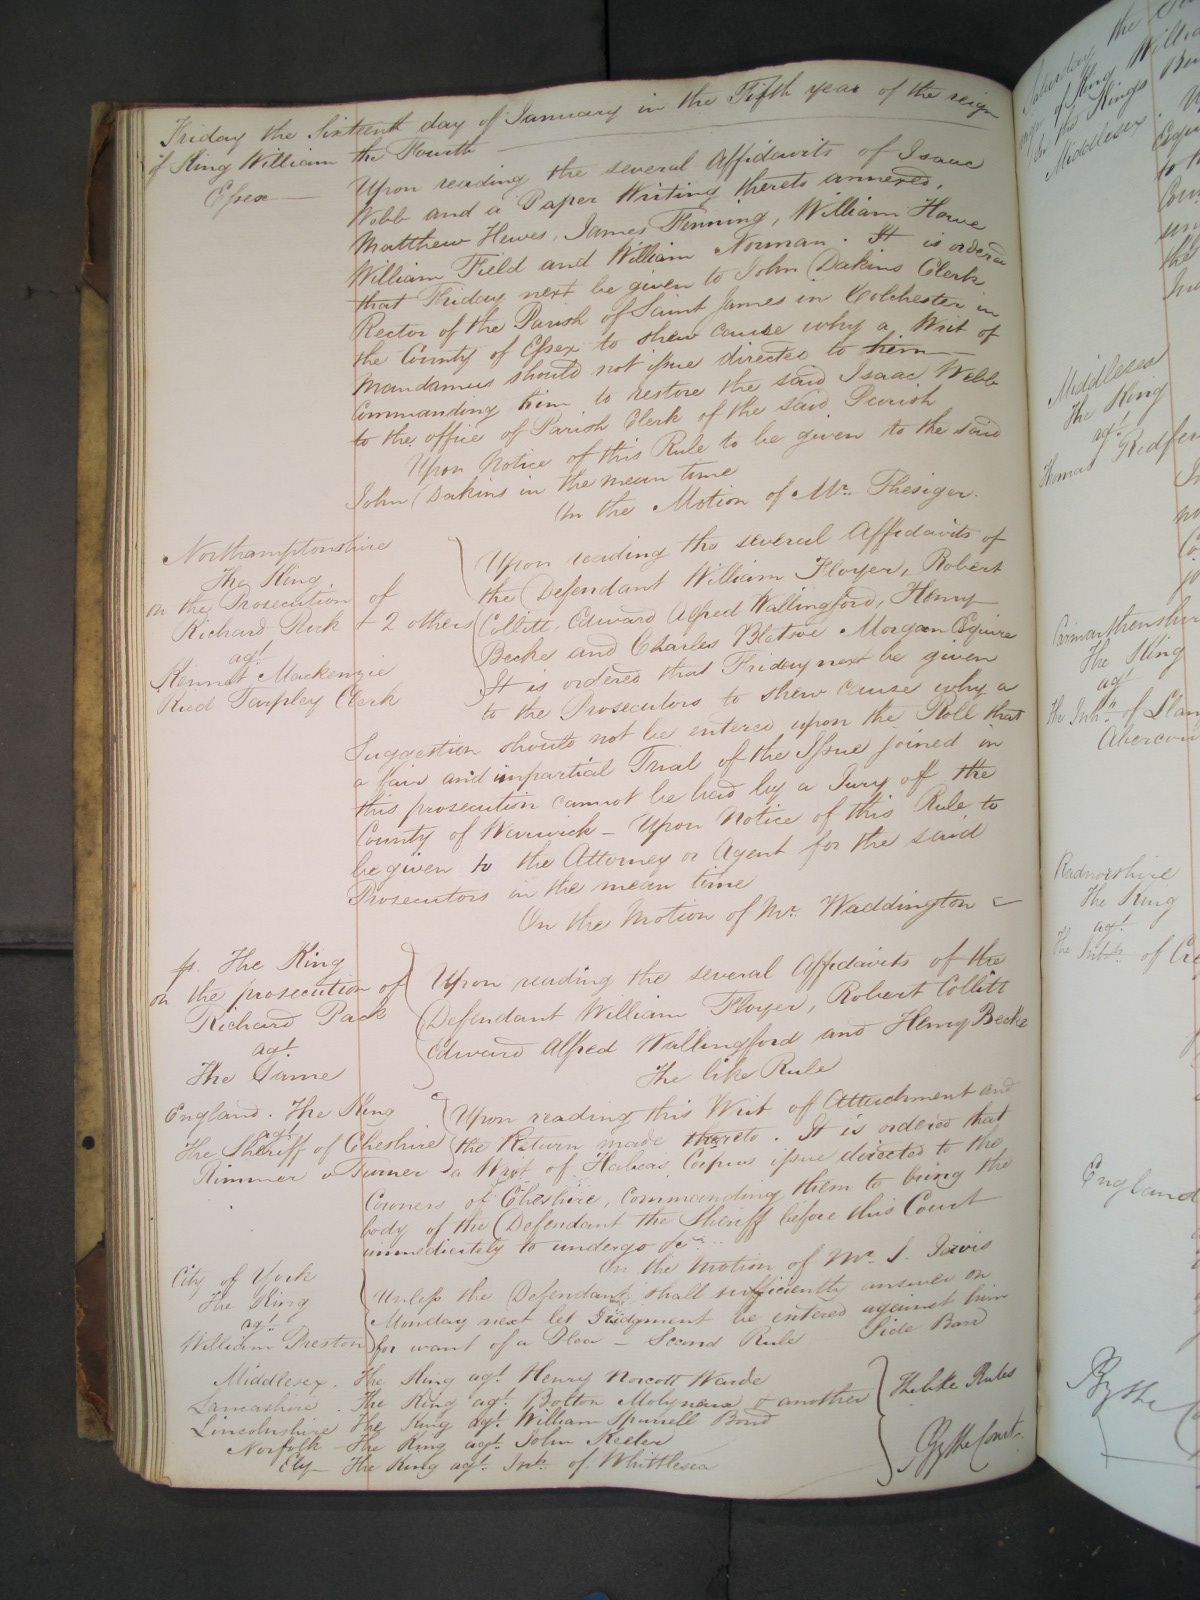 Friday the Sixteenth day of January in the Fifth year of the reign
of King William the Fourth
Essex
Upon reading the several Affidavits of Isaac
Webb and a Paper Writing thereto annexed,
Matthew Hewes, James Fenning, William Howe
William Field and William Norman. It is ordered
that Friday next be given to John Dakins Clerk
Rector of the Parish of Saint James in Colchester in
the County of Essex to shew cause why a Writ of
Mandamus should not issue directed to him
Commanding him to restore the said Isaac Webb
to the office of Parish Clerk of the said Parish
Upon Notice of this Rule to be given to the said
John Dakins in the mean time
On the Motion of Mr. Thesiger.
Northamptonshire
The King
on the Prosecution of
Richard Pack & 2 others
agt.
Kennet Mackenzie
Reid Tarpley Clerk
Upon reading the several Affidavits of
the Defendant William Floyer, Robert
Collitt, Edward Alfred Wallingford, Henry
Becke and Charles Bletsoe Morgan Esquire
It is ordered that Friday next be given
to the Prosecutors to shew cause why a
Suggestion should not be entered upon the Roll that
a fair and impartial Trial of the Issue joined in
this prosecution cannot be had by a Jury of the
County of Warwick - Upon Notice of this Rule to
be given to the Attorney or Agent for the said
Prosecutors in the mean time
On the Motion of Mr. Waddington
The King
on the prosecution of
Richard Pack
agt.
The Same
Upon reading the several Affidavits of the
Defendant William Floyer, Robert Collitt
Edward Alfred Wallingford and Henry Becke
The like Rule
England. The King
agt.
The Sheriff of Cheshire
Rimmer v Turner
Upon reading this Writ of Attachment and
the Return made thereto. It is ordered that
a Writ of Habeas Corpus issue directed to the
Coroners of Cheshire, commanding them to bring the
body of the Defendant the Sheriff before this Court
immediately to undergo &c.
On the Motion of Mr. J. Jervis
City of York
The King
agt.
William Preston
Unless the Defendant shall sufficiently answer on
Monday next let Judgment be entered against him
for want of a Plea - Second Rule Side Bar
Middlesex. The King agt. Henry Norcott Warde
Lancashire. The King agt. Bolton Molyneux & another
Lincolnshire The King agt. William Spurrell Bond
Norfolk The King agt. John Keeler
Ely The King agt. Inhts. of Whittlesea
The like Rules
By the Court.
Middlesex
Middlesex
The King
agt.
Thomas
Carmarthenshire
The King
agt.
The Inhts. of
Radnorshire
The King
agt.
The Inhts. of
England
By the